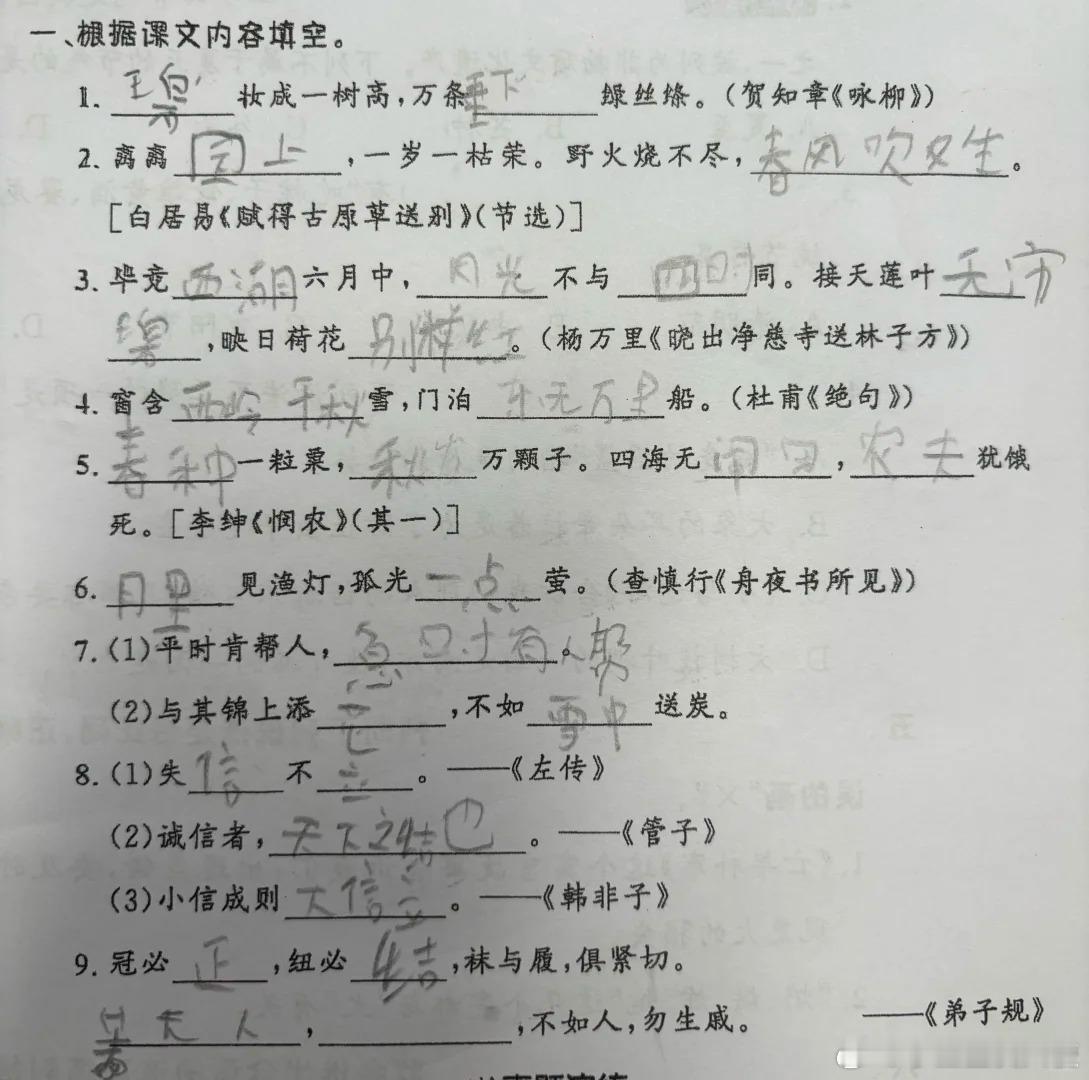 一、根据课文内容填空。
1. 碧 妆成一树高,万条垂下绿丝绦。(贺知章《咏柳》)
2. 离离 上,一岁一枯荣。野火烧不尽,春风吹又生。
[白居易《赋得古原草送别》(节选)]
3. 毕竟西湖六月中, 光不与四时同。接天莲叶无穷
碧,映日荷花别样 。(杨万里《晓出净慈寺送林子方》)
4. 窗含西岭千秋雪,门泊东 万里船。(杜甫《绝句》)
5. 春种一粒粟,秋 万颗子。四海无闲田,农夫犹饿
死。[李绅《悯农》(其一)]
6. 月黑见渔灯,孤光一点萤。(查慎行《舟夜书所见》)
7. (1)平时肯帮人,急 有人帮。
(2)与其锦上添 ,不如雪中送炭。
8. (1)失信不立。——《左传》
(2)诚信者,天下之结也。——《管子》
(3)小信成则大信立。——《韩非子》
9. 冠必正,纽必结,袜与履,俱紧切。
人, ,不如人,勿生戚。 ——《弟子规》